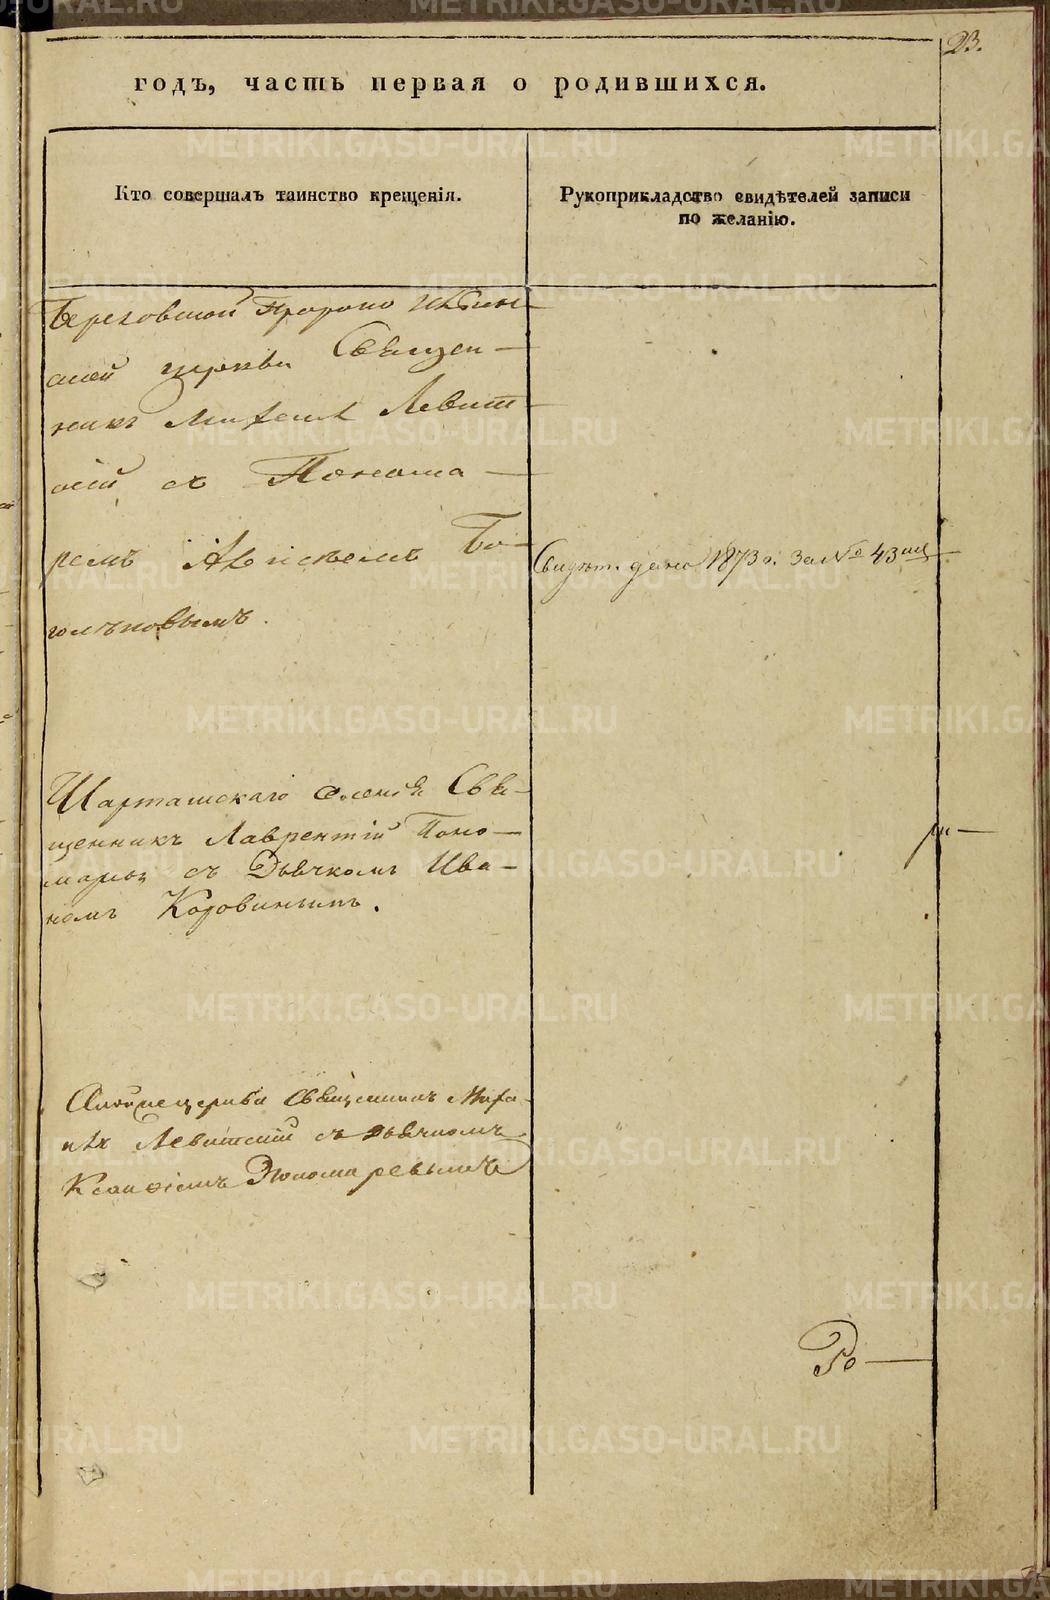 23.
годъ, часть первая о родившихся.
Кто совершалъ таинство крещенія.
Рукоприкладство свидѣтелей записи
по желанію.
Березовской Пророко Ильин-
ской церкви Священ-
никъ Михаил Левит
скій съ Понома-
ремъ Алексѣемъ Бо-
голѣповымъ.
Свидѣт. дано 1873 г. За № 43
Шарташскаго селенія Свя-
щенникъ Лаврентій Поно-
марьв съ Дьячкомъ Ива-
номъ Коровинымъ.
Священникъ Миха-
илъ Левитскій съ дьячкомъ
Пономаревымъ
Ро-
METRIKI.GASO-URAL.RU